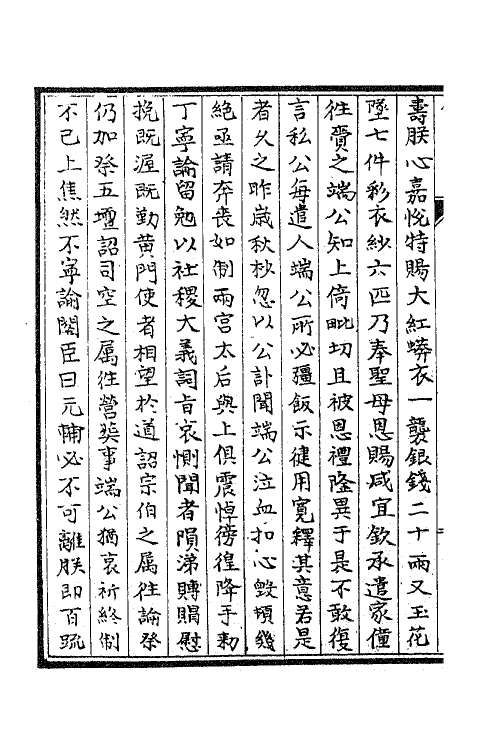 壽朕心嘉悅特賜大紅蟒衣一襲銀錢二十兩又玉花
墜七件彩衣紗六匹乃奉聖母恩賜咸宜欽承遣家僮
往賫之端公知上倚毗切且被恩禮隆異于是不敢復
言私公每遣人端公所必彊飯示健用寬釋其意若是
者久之昨歲秋杪忽以公訃聞端公泣血扣心毀頓幾
絕亟請奔喪如制兩宮太后與上俱震悼徬徨降手勅
丁寧諭留勉以社稷大義詞旨哀惻聞者隕涕賻賜慰
挽既渥既勤黄門使者相望於道詔宗伯之属往諭祭
仍加祭五壇詔司空之属往營𦵏事端公猶哀祈終制
不已上焦然不寧諭閣臣曰元輔必不可離朕即百疏